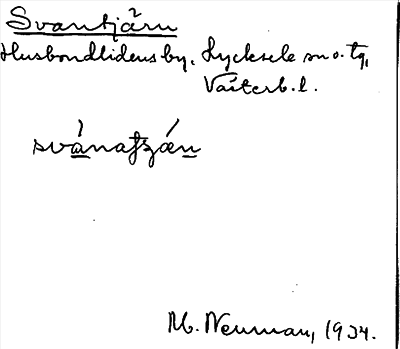 Svantjärn
Husbondlidens by, Lycksele sn o. tg,
Västerb. l.
M. Neuman, 1934.